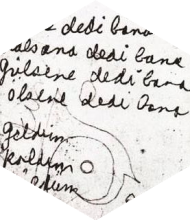 dedi bana
alsana dedi bana
gülsene dedi bana
ölsene dedi bana
geldim
kaldım